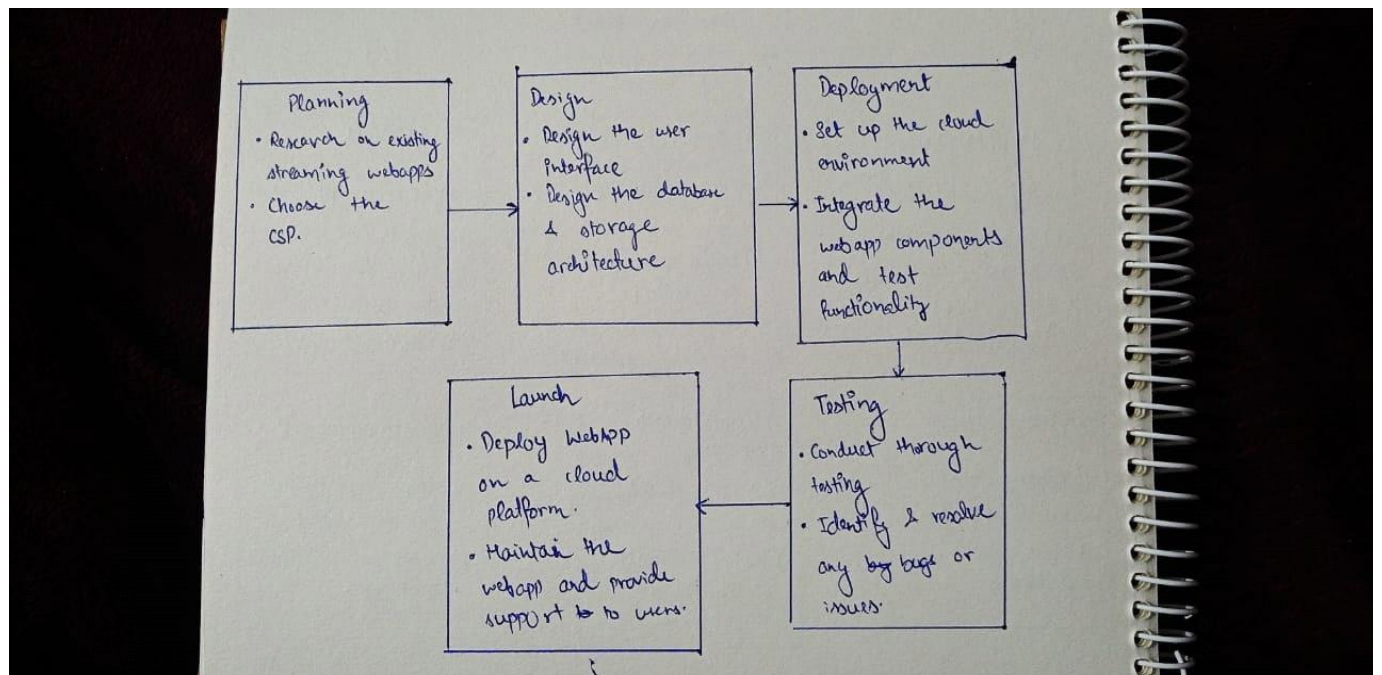 Planning
• Research on existing
streaming webapps
• Choose the
CSP.
Design
• Design the user
interface
• Design the database
& storage
architecture
Deployment
• Set up the cloud
environment
• Integrate the
webapp components
and test
functionality
Testing
• Conduct thorough
testing
• Identify & resolve
any bugs or
issues.
Launch
• Deploy WebAPP
on a cloud
platform.
• Maintain the
webapp and provide
support to users.